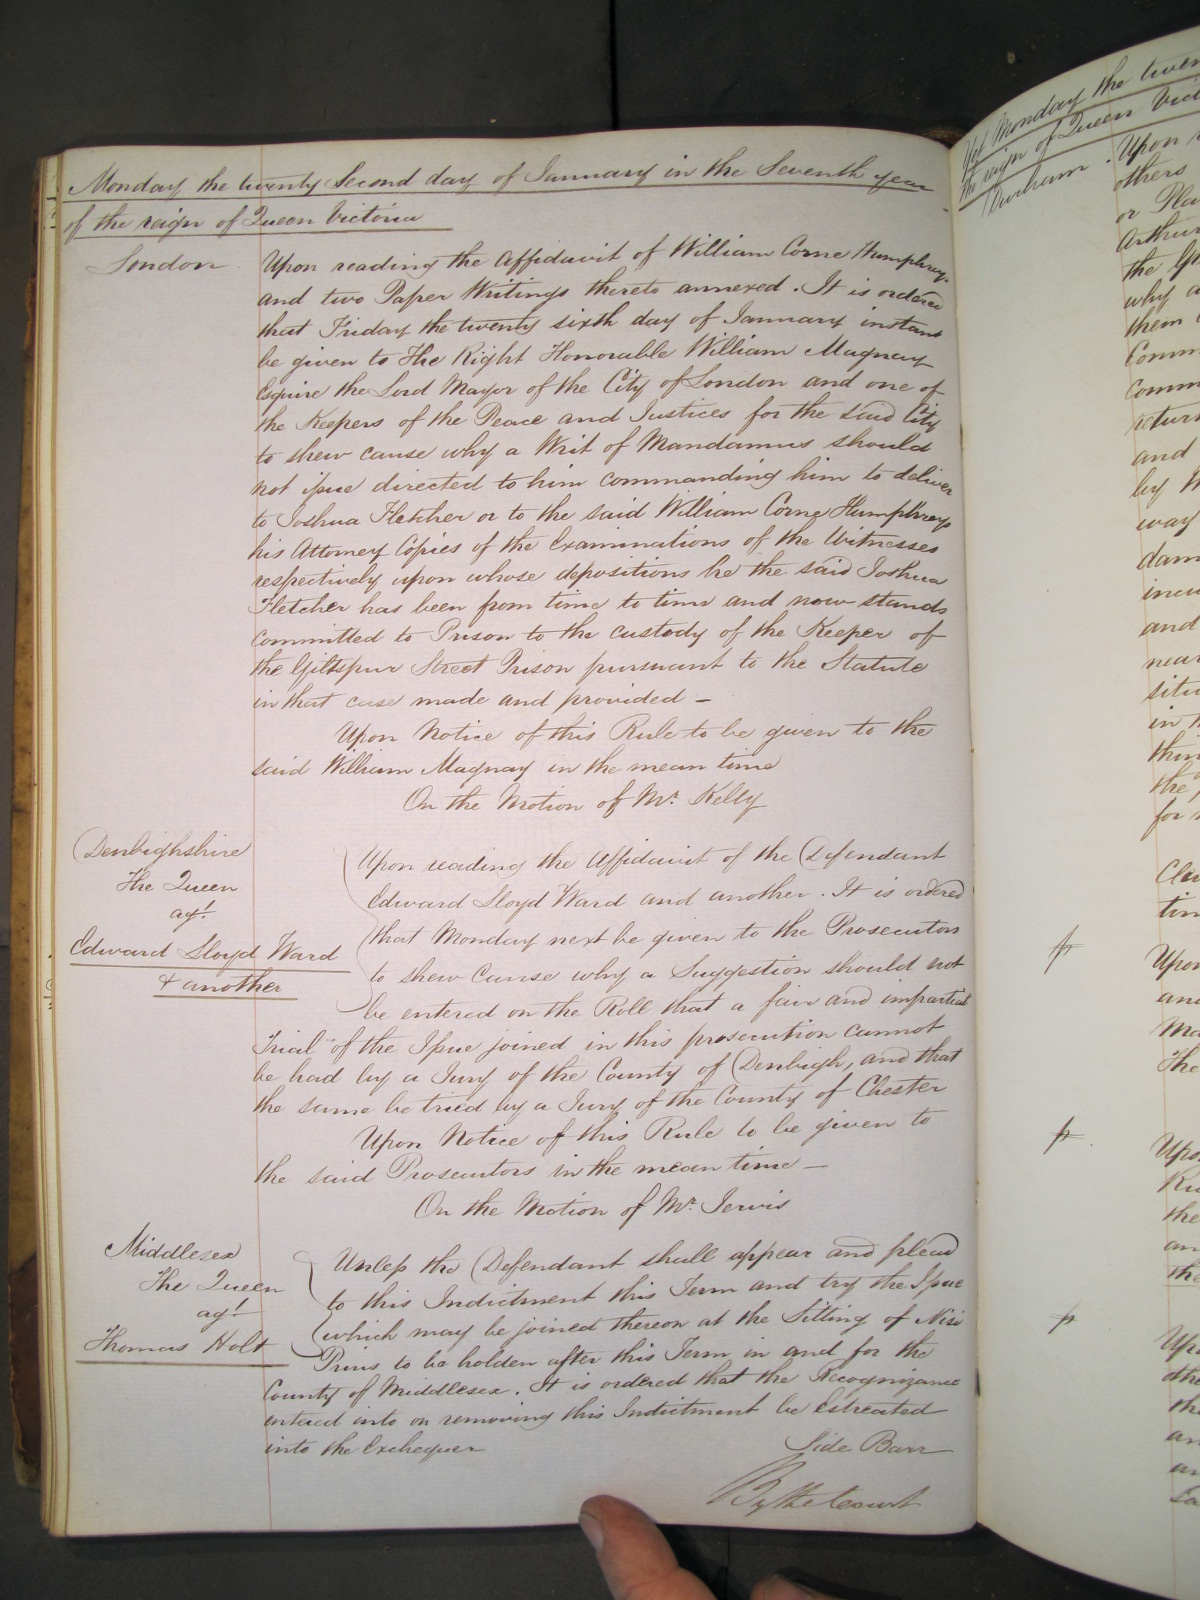 Monday the twenty Second day of January in the Seventh year
of the reign of Queen Victoria
London
Upon reading the Affidavit of William Corne Humphreys
and two Paper Writings thereto annexed. It is ordered
that Friday the twenty sixth day of January instant
be given to The Right Honorable William Magnay
Esquire the Lord Mayor of the City of London and one of
the Keepers of the Peace and Justices for the said City
to shew cause why a Writ of Mandamus should
not issue directed to him commanding him to deliver
to Joshua Fletcher or to the said William Corne Humphreys
his Attorney Copies of the Examinations of the Witnesses
respectively upon whose depositions he the said Joshua
Fletcher has been from time to time and now stands
committed to Prison to the custody of the Keeper of
the Giltspur Street Prison pursuant to the Statute
in that case made and provided –
Upon Notice of this Rule to be given to the
said William Magnay in the mean time
On the Motion of Mr. Kelly
Denbighshire
The Queen
agt.
Edward Lloyd Ward
& another
Upon reading the Affidavit of the Defendant
Edward Lloyd Ward and another. It is ordered
that Monday next be given to the Prosecutors
to shew Cause why a Suggestion should not
be entered on the Roll that a fair and impartial
Trial of the Issue joined in this prosecution cannot
be had by a Jury of the County of Denbigh, and that
the same be tried by a Jury of the County of Chester
Upon Notice of this Rule to be given to
the said Prosecutors in the mean time –
On the Motion of Mr. Jervis
Middlesex
The Queen
agt.
Thomas Holt
Unless the Defendant shall appear and plead
to this Indictment this Term and try the Issue
which may be joined thereon at the Sitting of Nisi
Prius to be holden after this Term in and for the
County of Middlesex. It is ordered that the Recognizance
entered into on removing this Indictment be Estreated
into the Exchequer
Side Barr
By the Court
Monday the twen
the reign of Queen Vict
Durham
Upon
others
or Pla
Arthur
the
why a
them
Comm
comm
return
and
by W
way
dam
incu
and
near
situ
in
thin
the
for
tim
Upon
and
Ma
The
Upon
Ru
the
an
the
Upo
othe
the
an
an